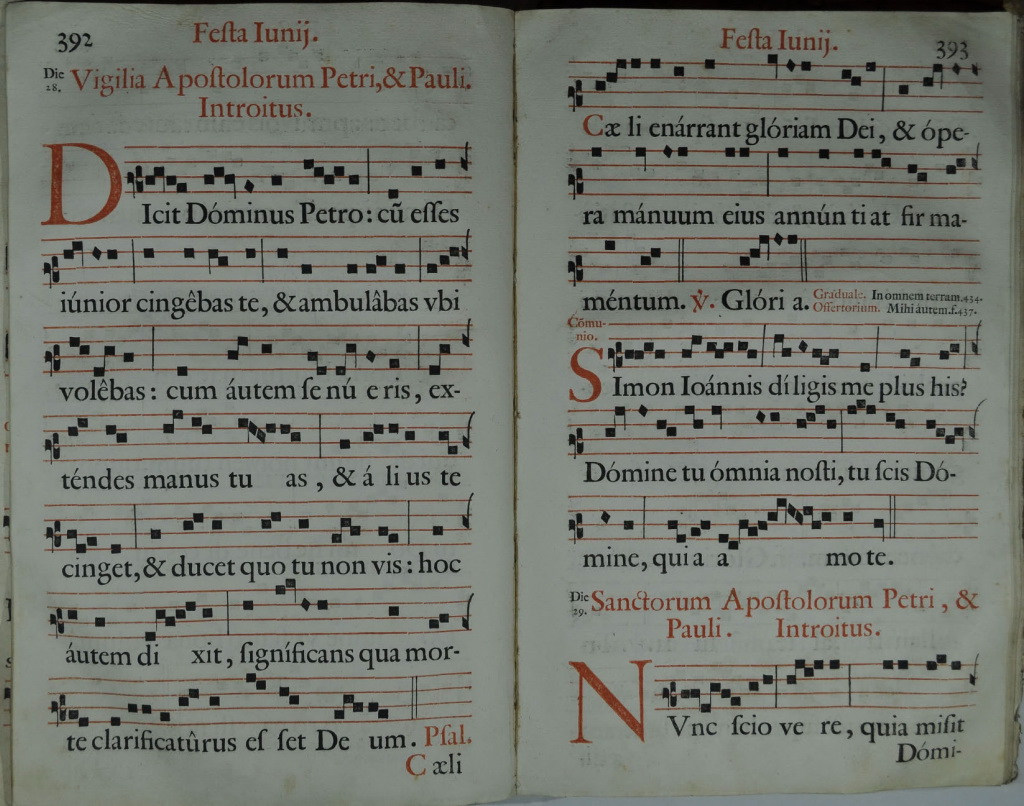 392
Festa Iunij.
Die 28. Vigilia Apostolorum Petri, & Pauli.
Introitus.
DIcit Dóminus Petro: cũ esses
iúnior cingêbas te, & ambulâbas vbi
volêbas: cum áutem se nú e ris, ex-
téndes manus tu as, & á li us te
cinget, & ducet quo tu non vis: hoc
áutem di xit, significans qua mor-
te clarificatûrus es set De um. Psal.
Cæli
Festa Iunij.
393
Cæ li enárrant glóriam Dei, & ópe-
ra mánuum eius annún ti at fir ma-
méntum. ℣. Glóri a. Graduale. In omnem terram. 434.
Offertorium. Mihi áutem. f. 437.
Cõmu-
nio.
SImon Ioánnis dí ligis me plus his?
Dómine tu ómnia nosti, tu scis Dó-
mine, qui a a mo te.
Die 29. Sanctorum Apostolorum Petri, &
Pauli. Introitus.
NVnc scio ve re, quia misit
Dómi-